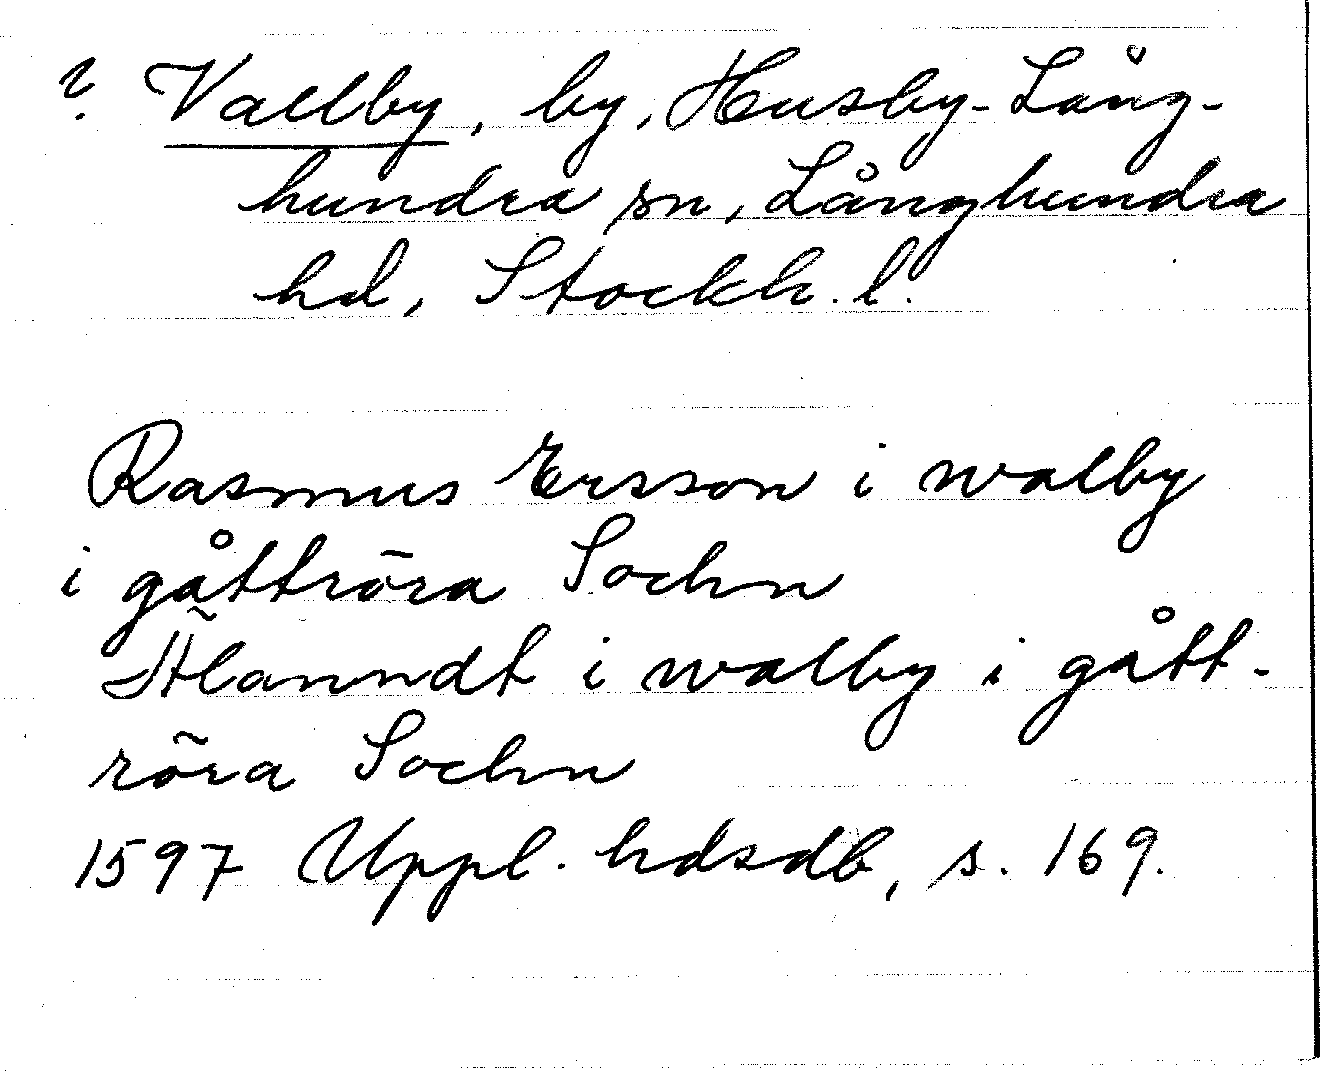 ? Vallby, by, Husby-Lång-
hundra sn, Långhundra
hd, Stockh. l.
Rasmus Ersson i walby
i gåttrõra Sochn
Ãlanndt i walby i gått-
rõra Sochn
1597 Uppl. hdsdb, s. 169.